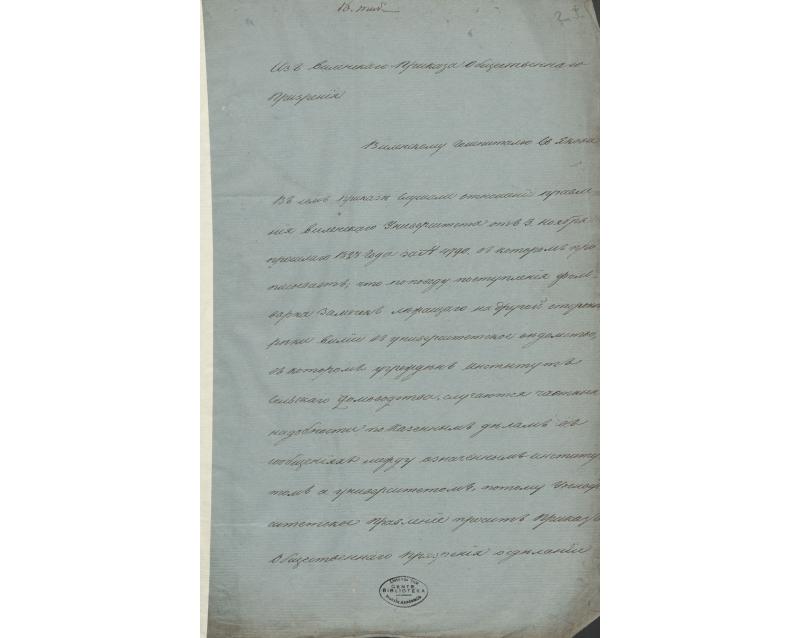 15. люб.
Изъ Виленскаго Приказа Общественнаго
Призрѣнія
Виленскому Гошпиталю Св Якова
Въ семъ Приказѣ слушали отношеніе правле-
нія Виленскаго Университета отъ 3. Ноября
прошлаго 1827 года за № 4790. въ которомъ про
писываетъ, что по поводу поступленія фоль-
варка Замечекъ лежащаго на другой стороне
реки Виліи въ университетское вѣдомство,
въ которомъ учрежденъ институтъ
Сельскаго Домоводства, случаются частыя
надобности по Казеннымъ дѣламъ въ
сообщеніяхъ между означеннымъ институ
томъ и университетомъ, потому Универ
ситетское Правленіе проситъ Приказъ
Общественнаго Призрѣнія о дѣланіи
CENTR.
BIBLIOTEKA